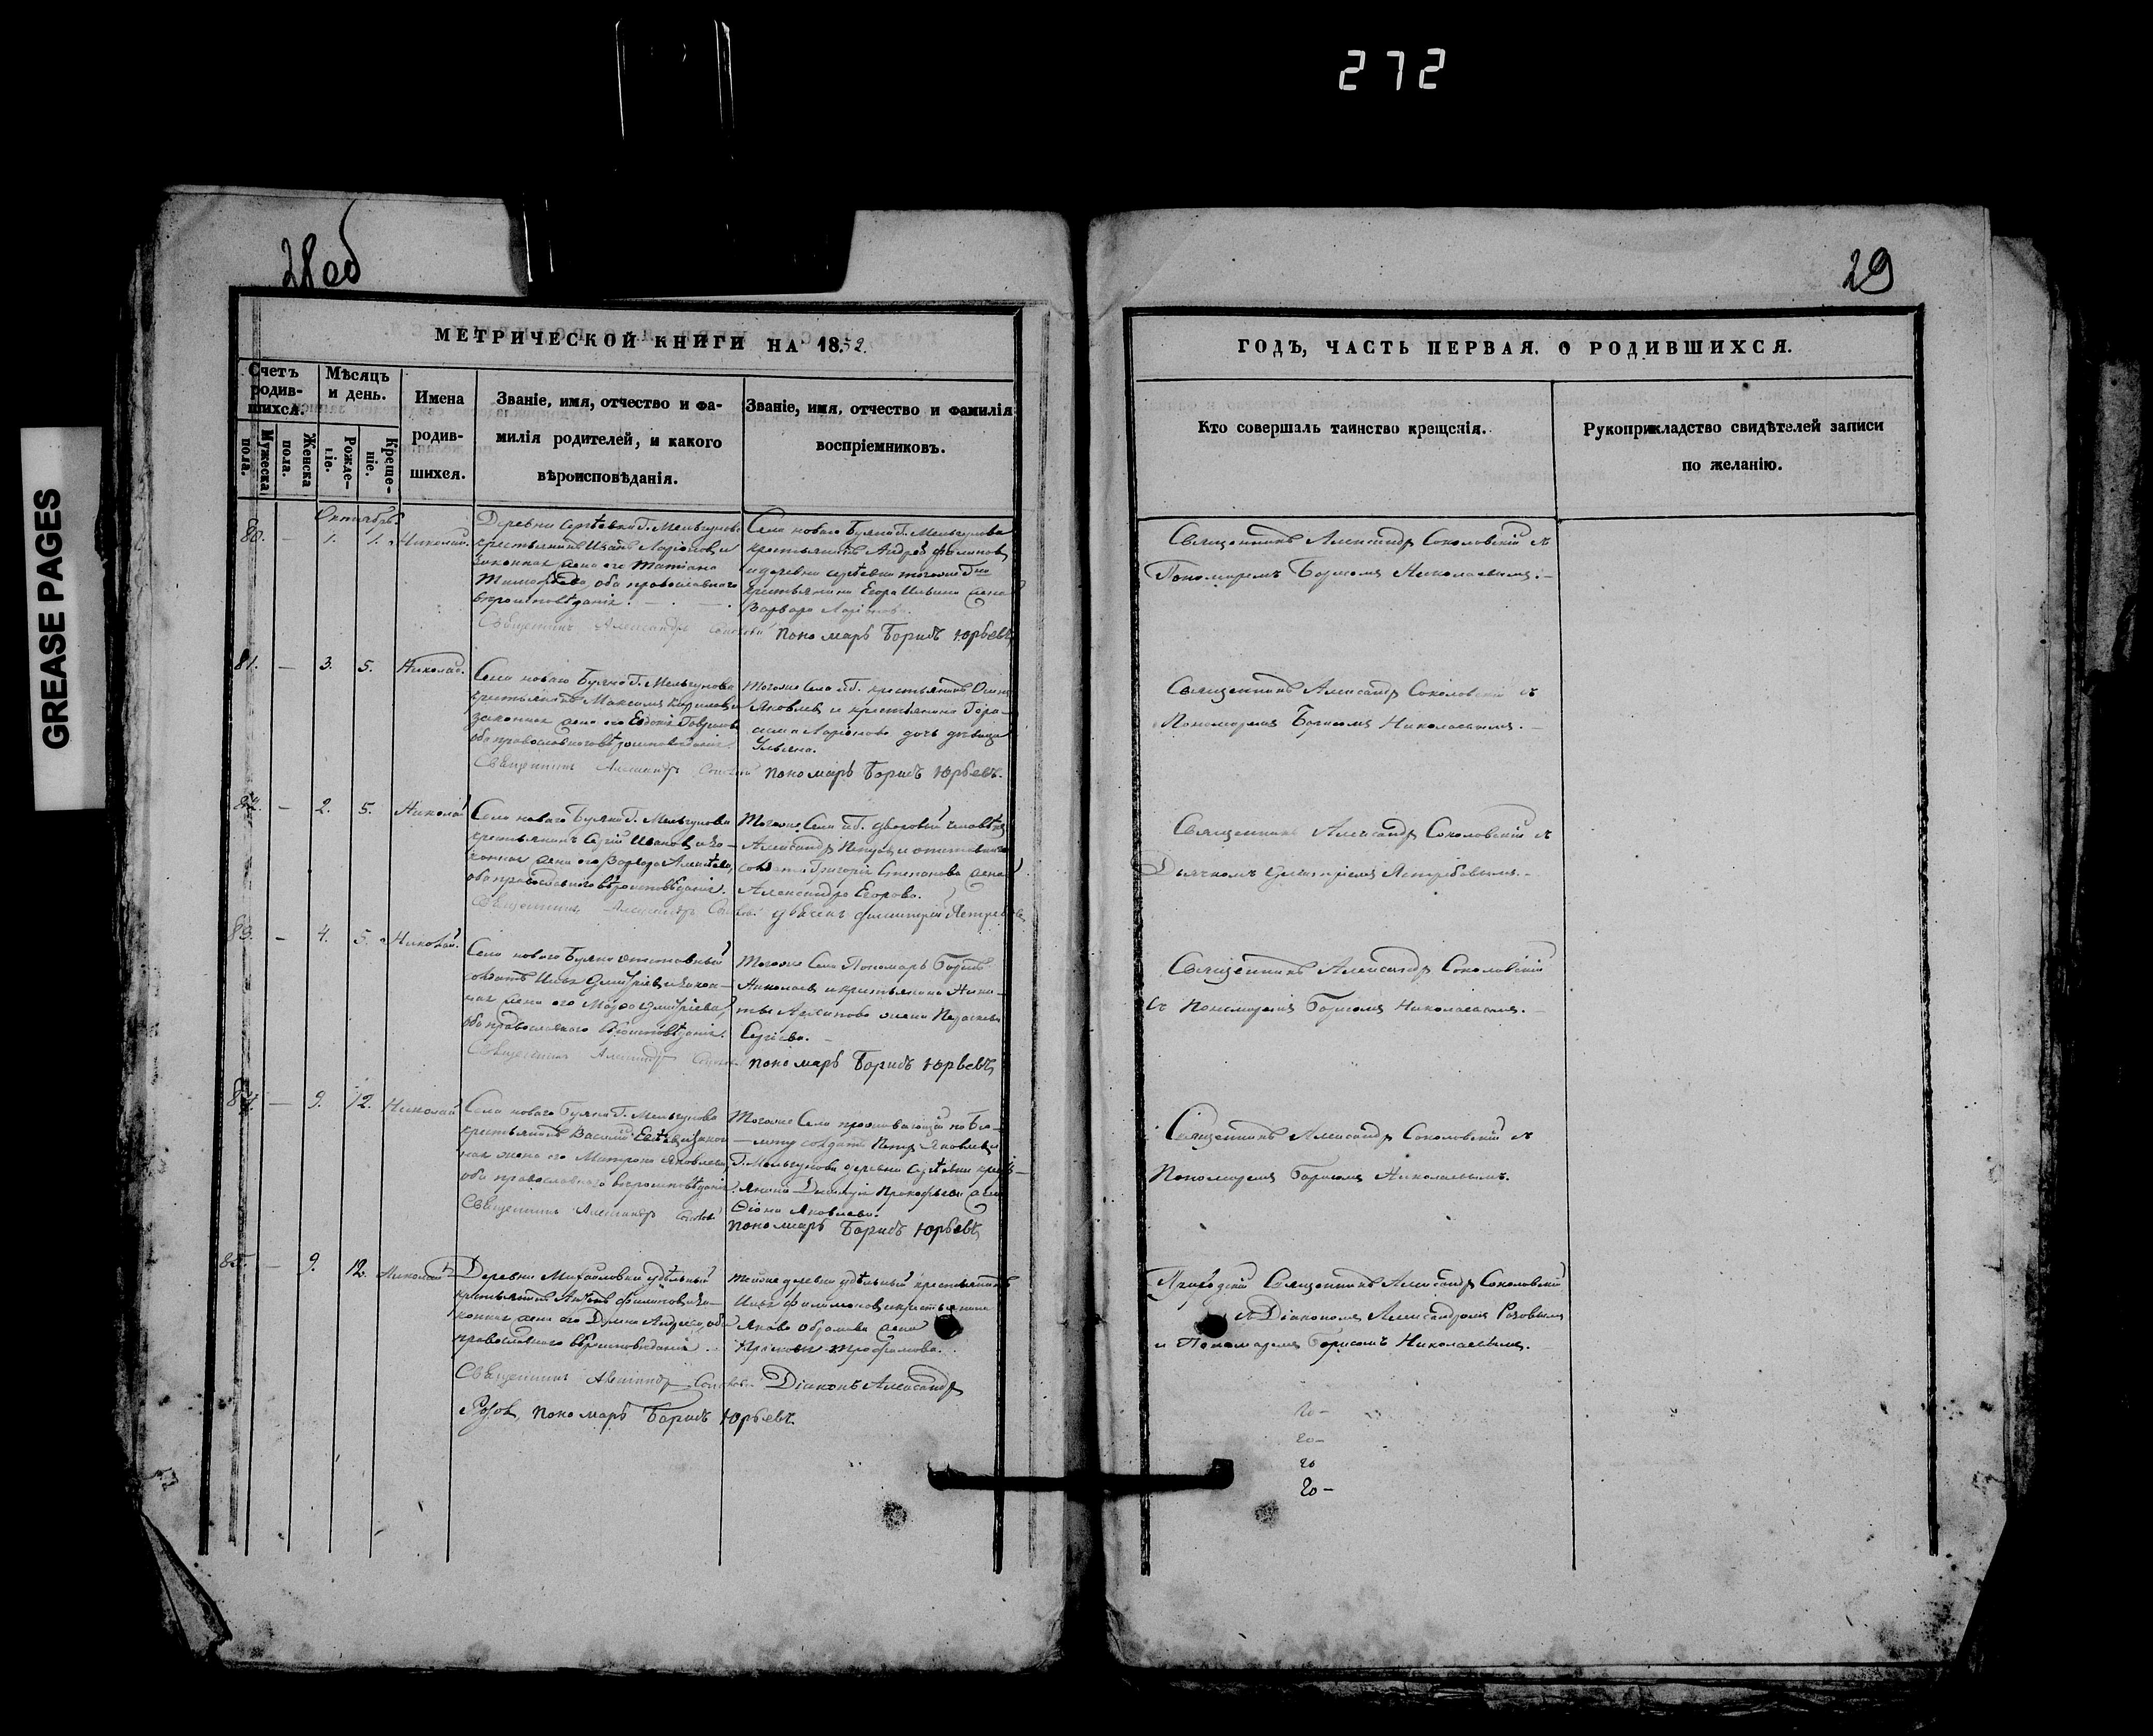 272
GREASE PAGES
28 об
29
МЕТРИЧЕСКОЙ КНИГИ НА 1852.
ГОДЪ, ЧАСТЬ ПЕРВАЯ. О РОДИВШИХСЯ.
Счетъ родив-
шихся.
Мужеска пола.
Женска пола.
Мѣсяцъ
и день.
Рожде-
ніе.
Креще-
ніе.
Имена
родив-
шихся.
Званіе, имя, отчество и фа-
милія родителей, и какого
вѣроисповѣданія.
Званіе, имя, отчество и фамилія
воспріемниковъ.
Кто совершалъ таинство крещенія.
Рукоприкладство свидѣтелей записи
по желанію.
80. — 1. 1. Николай.
Деревни Сергѣевки Г. Мельгунова
крестьянинъ Иванъ Ларіоновъ и
законная жена его Татіана
Тимофѣева, оба православнаго
вѣроисповѣданія.
Села новаго Буяна Г. Мельгунова
крестьянинъ Андрей Филиповъ
и деревни Сергѣевки тогоже Гна
крестьянина Егора Ильина жена
Варвара Ларіонова.
Священникъ Александръ пономарь Борисъ Юрьевъ
Священникъ Александръ Соколовскій съ
Пономаремъ Борисомъ Николаевымъ.
81. — 3. 5. Николай.
Села новаго Буяна Г. Мельгунова
крестьянинъ Максимъ Кириловъ и
законная жена его Евдокія Гаврилова
оба православнаго вѣроисповѣданія.
Тогоже Села и Г. крестьянинъ Осипъ
Яковлевъ и крестьянина Гера-
сима Ларіонова дочь дѣвица
Ульяна.
Священникъ Александръ пономарь Борисъ Юрьевъ.
Священникъ Александръ Соколовскій съ
Пономаремъ Борисомъ Николаевымъ.
82. — 2. 5. Николай
Села новаго Буяна Г. Мельгунова
крестьянинъ Сергій Ивановъ и за-
конная жена его Варвара
оба православнаго вѣроисповѣданія.
Тогоже Села и Г. дворовый человѣкъ
Александръ Петровъ и отставнаго
солдата Григорія Степанова жена
Александра Егорова.
Священникъ Александръ дьячекъ Димитрій
Священникъ Александръ Соколовскій съ
Дьячкомъ Димитріемъ Ястребовымъ.
83. — 4. 5. Николай.
Села новаго Буяна отставный
солдатъ Илья Дмитріевъ и закон-
ная жена его Мавра Дмитріева,
оба православнаго вѣроисповѣданія.
Тогоже Села Пономарь Борисъ
Николаевъ и крестьянина Ники-
ты жена Параскева
Сергіева.
Священникъ Александръ пономарь Борисъ Юрьевъ
Священникъ Александръ Соколовскій
съ Пономаремъ Борисомъ Николаевымъ.
84. — 9. 12. Николай
Села новаго Буяна Г. Мельгунова
крестьянинъ Василій и закон-
ная жена его Матрона Яковлева
оба православнаго вѣроисповѣданія.
Тогоже Села проживающій по би-
лету солдатъ Петръ Яковлевъ и
Г. Мельгунова деревни Сергѣевки кресть-
янина Димитрія Прокофьева жена
Яковлева.
Священникъ Александръ
пономарь Борисъ Юрьевъ
Священникъ Александръ Соколовскій съ
Пономаремъ Борисомъ Николаевымъ.
85. — 9. 12. Николай
Деревни Михайловки удѣльный
крестьянинъ Антонъ Филиповъ и за-
конная жена его оба
православнаго вѣроисповѣданія.
Тойже деревни удѣльный крестьянинъ
Илья Филимоновъ и крестьянина
Якова жена
Трофимова.
Священникъ Александръ Діаконъ Александръ
Розовъ, пономарь Борисъ Юрьевъ.
Приходскій Священникъ Александръ Соколовскій
съ Діакономъ Александромъ Розовымъ
и Пономаремъ Борисомъ Николаевымъ.
20-
20-
20
20-